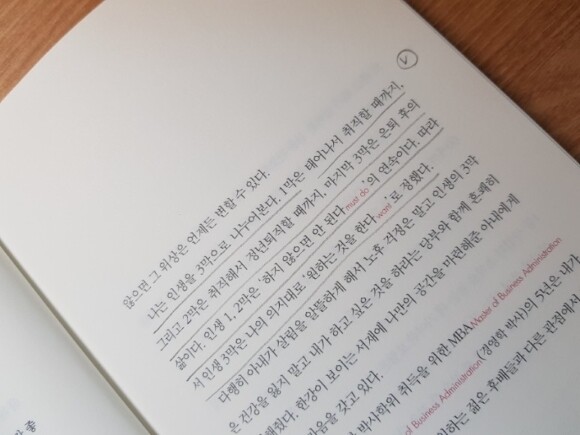 ✓
않으면 그 위상은 언제든 변할 수 있다.
나는 인생을 3막으로 나누어본다. 1막은 태어나서 취직할 때까지,
그리고 2막은 취직해서 정년퇴직할 때까지, 마지막 3막은 은퇴 후의
삶이다. 인생 1, 2막은 '하지 않으면 안 된다must do'의 연속이다. 따라
서 인생 3막은 나의 의지대로 '원하는 것을 한다want'로 정했다.
다행히 아내가 살림을 알뜰하게 해서 노후 걱정은 말고 인생의 3막
은 건강을 잃지 말고 내가 하고 싶은 것을 하라는 당부와 함께 흔쾌히
해줬다. 한강이 보이는 서재에 나만의 공간을 마련해준 아내에게
마음을 갖고 있다.
박사학위 취득을 위한 MBAMaster of Business Administration
of Business Administration(경영학 박사)의 5년은 내가
하는 젊은 후배들과 다른 관점에서
좋